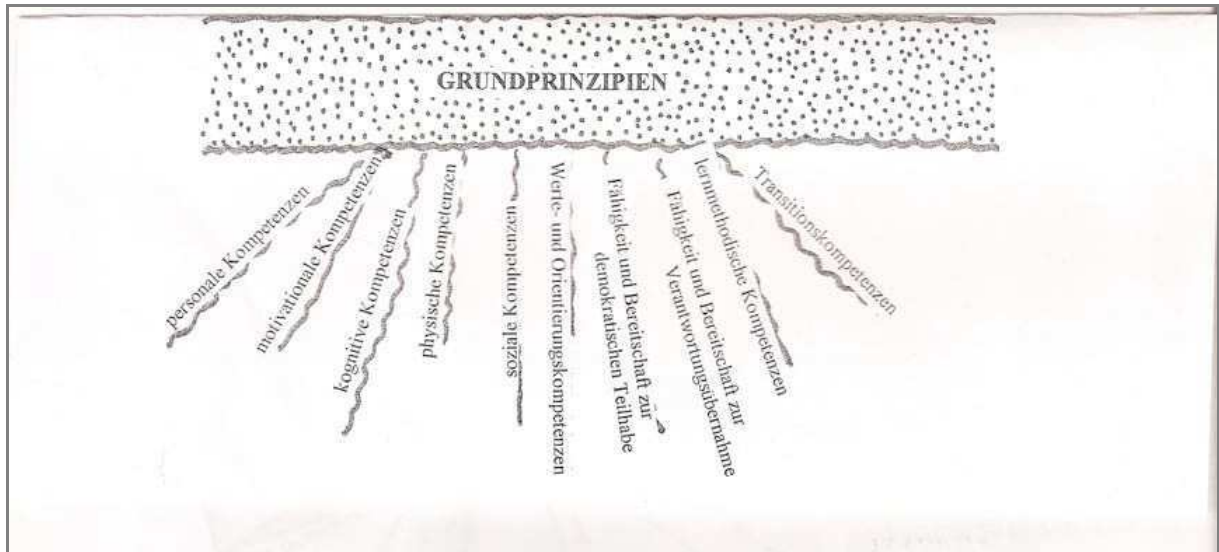 GRUNDPRINZIPIEN
personale Kompetenzen
motivationale Kompetenzen
kognitive Kompetenzen
physische Kompetenzen
soziale Kompetenzen
Werte- und Orientierungskompetenzen
Fähigkeit und Bereitschaft zur
demokratischen Teilhabe
Fähigkeit und Bereitschaft zur
Verantwortungsübernahme
lernmethodische Kompetenzen
Transitionskompetenzen